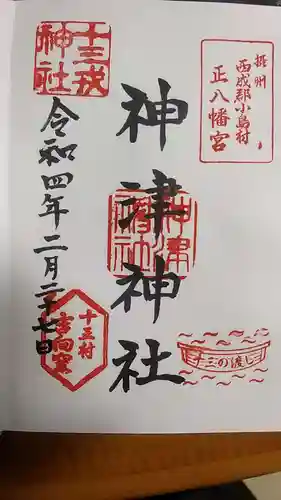 摂州
西成郡小島村
正八幡宮
神津神社
神津神社
十三の渡し
十三戎神社
令和四年二月二十七日
十三村
吉向窯